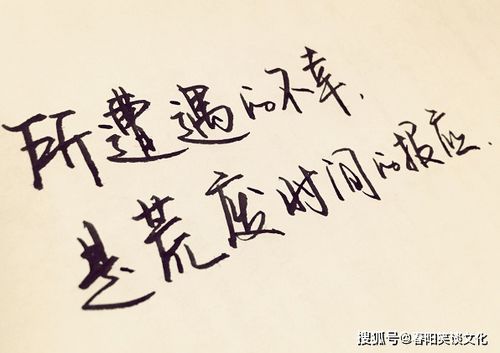 所遭遇的不幸，
是荒废时间的报应.
搜狐号@春阳笑谈文化